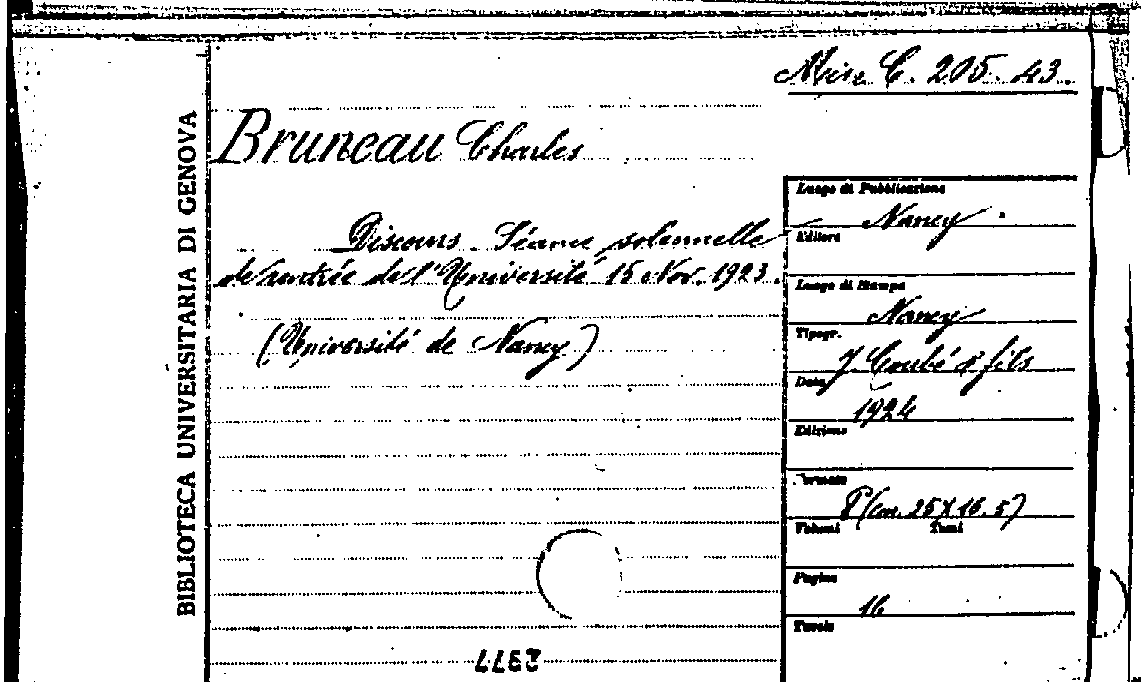 Misc. C. 205. 43.
BIBLIOTECA UNIVERSITARIA DI GENOVA
Bruneau Charles
Discours. Séance solennelle
de rentrée de l'Université 15 Nov. 1923.
(Université de Nancy)
Luogo di Pubblicazione
Nancy
Editore
Luogo di Stampa
Nancy
Tipogr.
J Coubé & fils
Data
1924
Edizione
Formato
8° (cm. 25 X 16.5)
Volumi Tomi
Pagine
16
Tavole